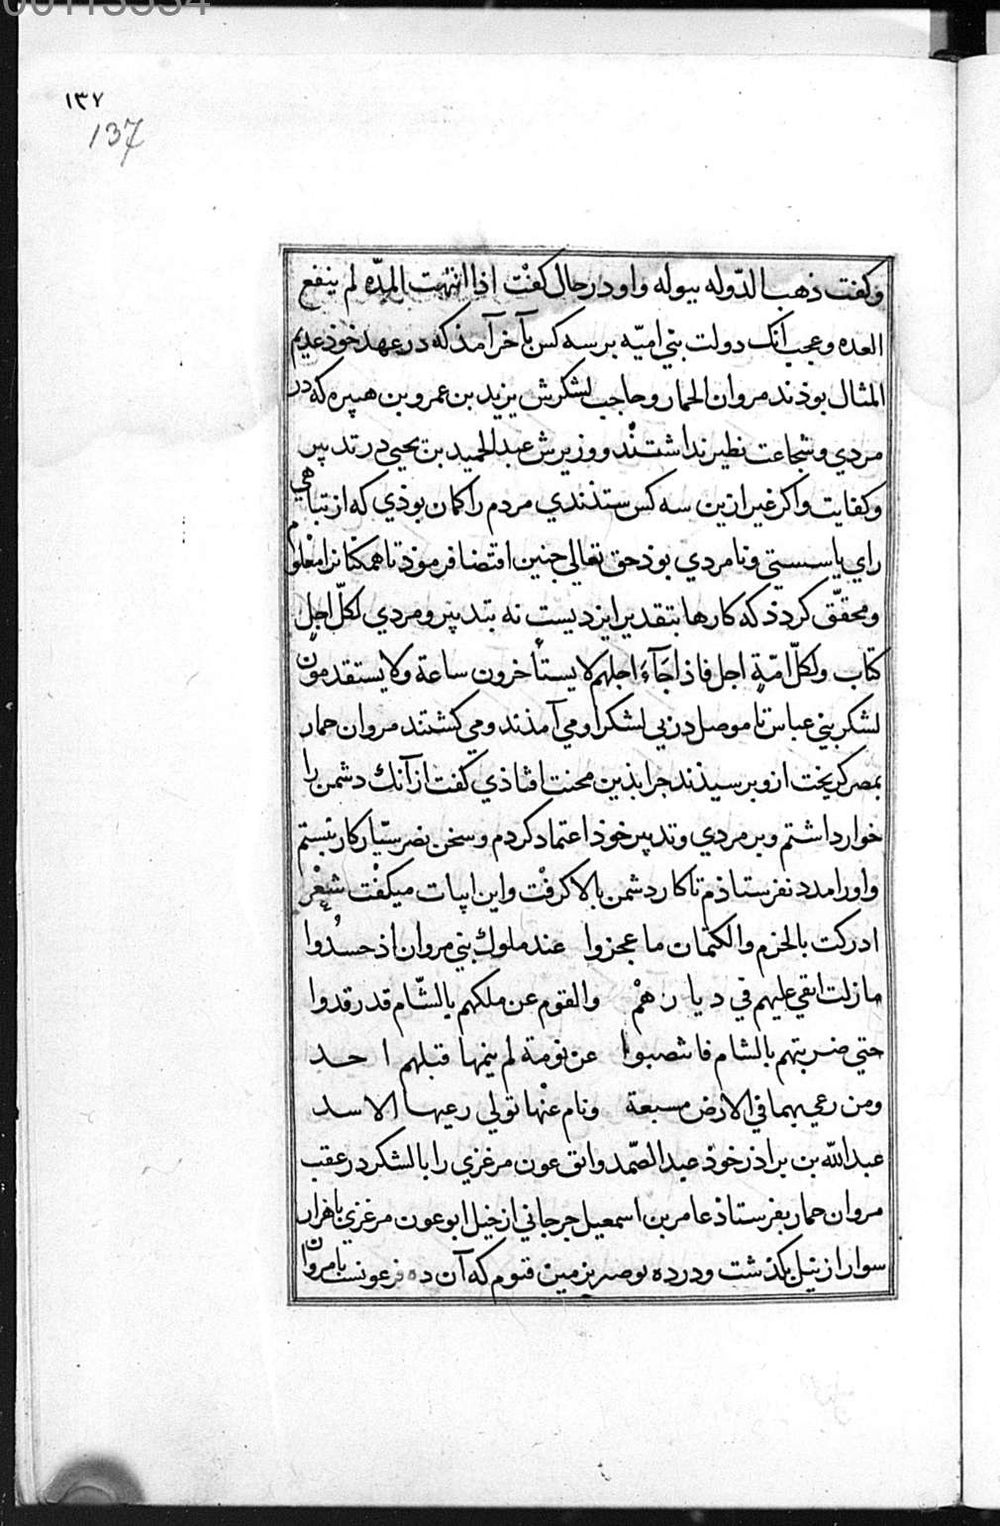 ۱۳۷
137
وكفت ذهب الدّوله ببوله واو در حال كفت اذا انتهت المدّه لم ينفع
العده وعجب انك دولت بني اميّه بر سه كس بآخر آمذ كه در عهد خوذ عديم
المثال بوذند مروان الحمار وحاجب لشكرش يزيد بن عمرو بن هبيره كه در
مردي وشجاعت نظير نداشتند ووزيرش عبد الحميد بن يحيى در تدبير
وكفايت واكر غير ازين سه كس ستذندي مردم را كمان بوذي كه از تباهي
راي يا سستي ونامردي بوذ حق تعالى جنين اقتضا فرموذ تا همكنانرا معلوم
ومحقّق كردذ كه كارها بتقدير ايزديست نه بتدبير ومردي لكلّ اجل
كتاب ولكلّ امّة اجل فاذا جآء اجلهم لا يستأخرون ساعة ولا يستقدمون
لشكر بني عباس تا موصل در پي لشكر او مي آمذند ومي كشتند مروان حمار
بمصر كريخت ازو برسيذند جرا بذين محنت افتاذي كفت از آنك دشمن را
خوار داشتم وبر مردي وتدبير خوذ اعتماد كردم وسخن نصر سيّار كار نبستم
واورا مدد نفرستاذم تا كار دشمن بالا كرفت واين ابيات ميكفت شعر
ادركت بالحزم والكتمان ما عجزوا عند ملوك بني مروان اذ حسدوا
ما زلت ابقي عليهم في ديارهم والقوم عن ملكهم بالشّام قد رقدوا
حتى ضربتهم بالشام فانتصبوا عن نومة لم ينمها قبلهم احد
ومن رعى بهما في الارض مسبعة ونام عنها تولى رعيها الاسد
عبد الله بن براذر خوذ عبد الصّمد وابو عون مرغزي را با لشكر در عقب
مروان حمار بفرستاذ عامر بن اسمعيل جرجاني از خيل ابو عون مرغزي با هزار
سوار از نيل بكذشت ودر ده بوصير بزمين فيوم كه آن ده فرعونست با مروان